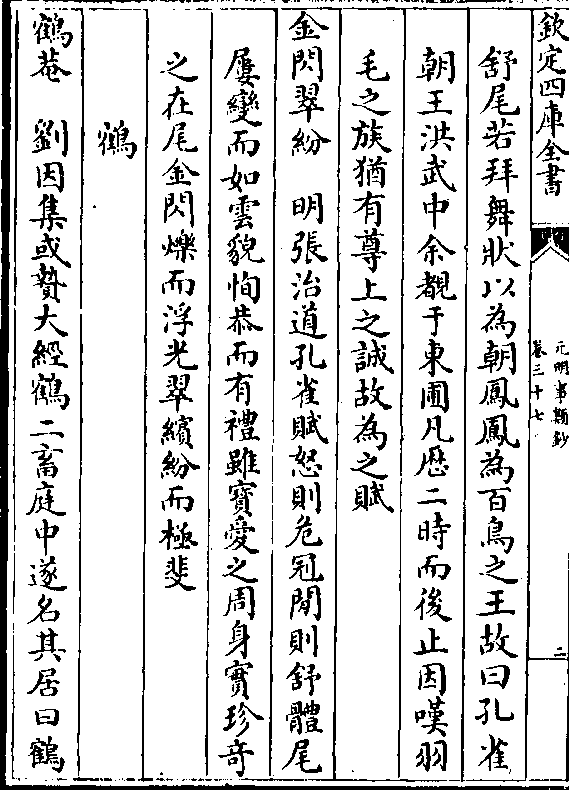 欽定四庫全書
元明事類鈔
卷三十七
二
舒尾若拜舞狀以為朝鳳鳳為百鳥之王故曰孔雀
朝王洪武中余覩于東圃凡歴二時而後止因嘆羽
毛之族猶有尊上之誠故為之賦
金閃翠紛　明張治道孔雀賦怒則危冠閒則舒體尾
屢變而如雲貌恂恭而有禮雖寶愛之周身實珍奇
之在尾金閃爍而浮光翠繽紛而極斐
鶴
鶴菴　劉因集或贄大經鶴二畜庭中遂名其居曰鶴